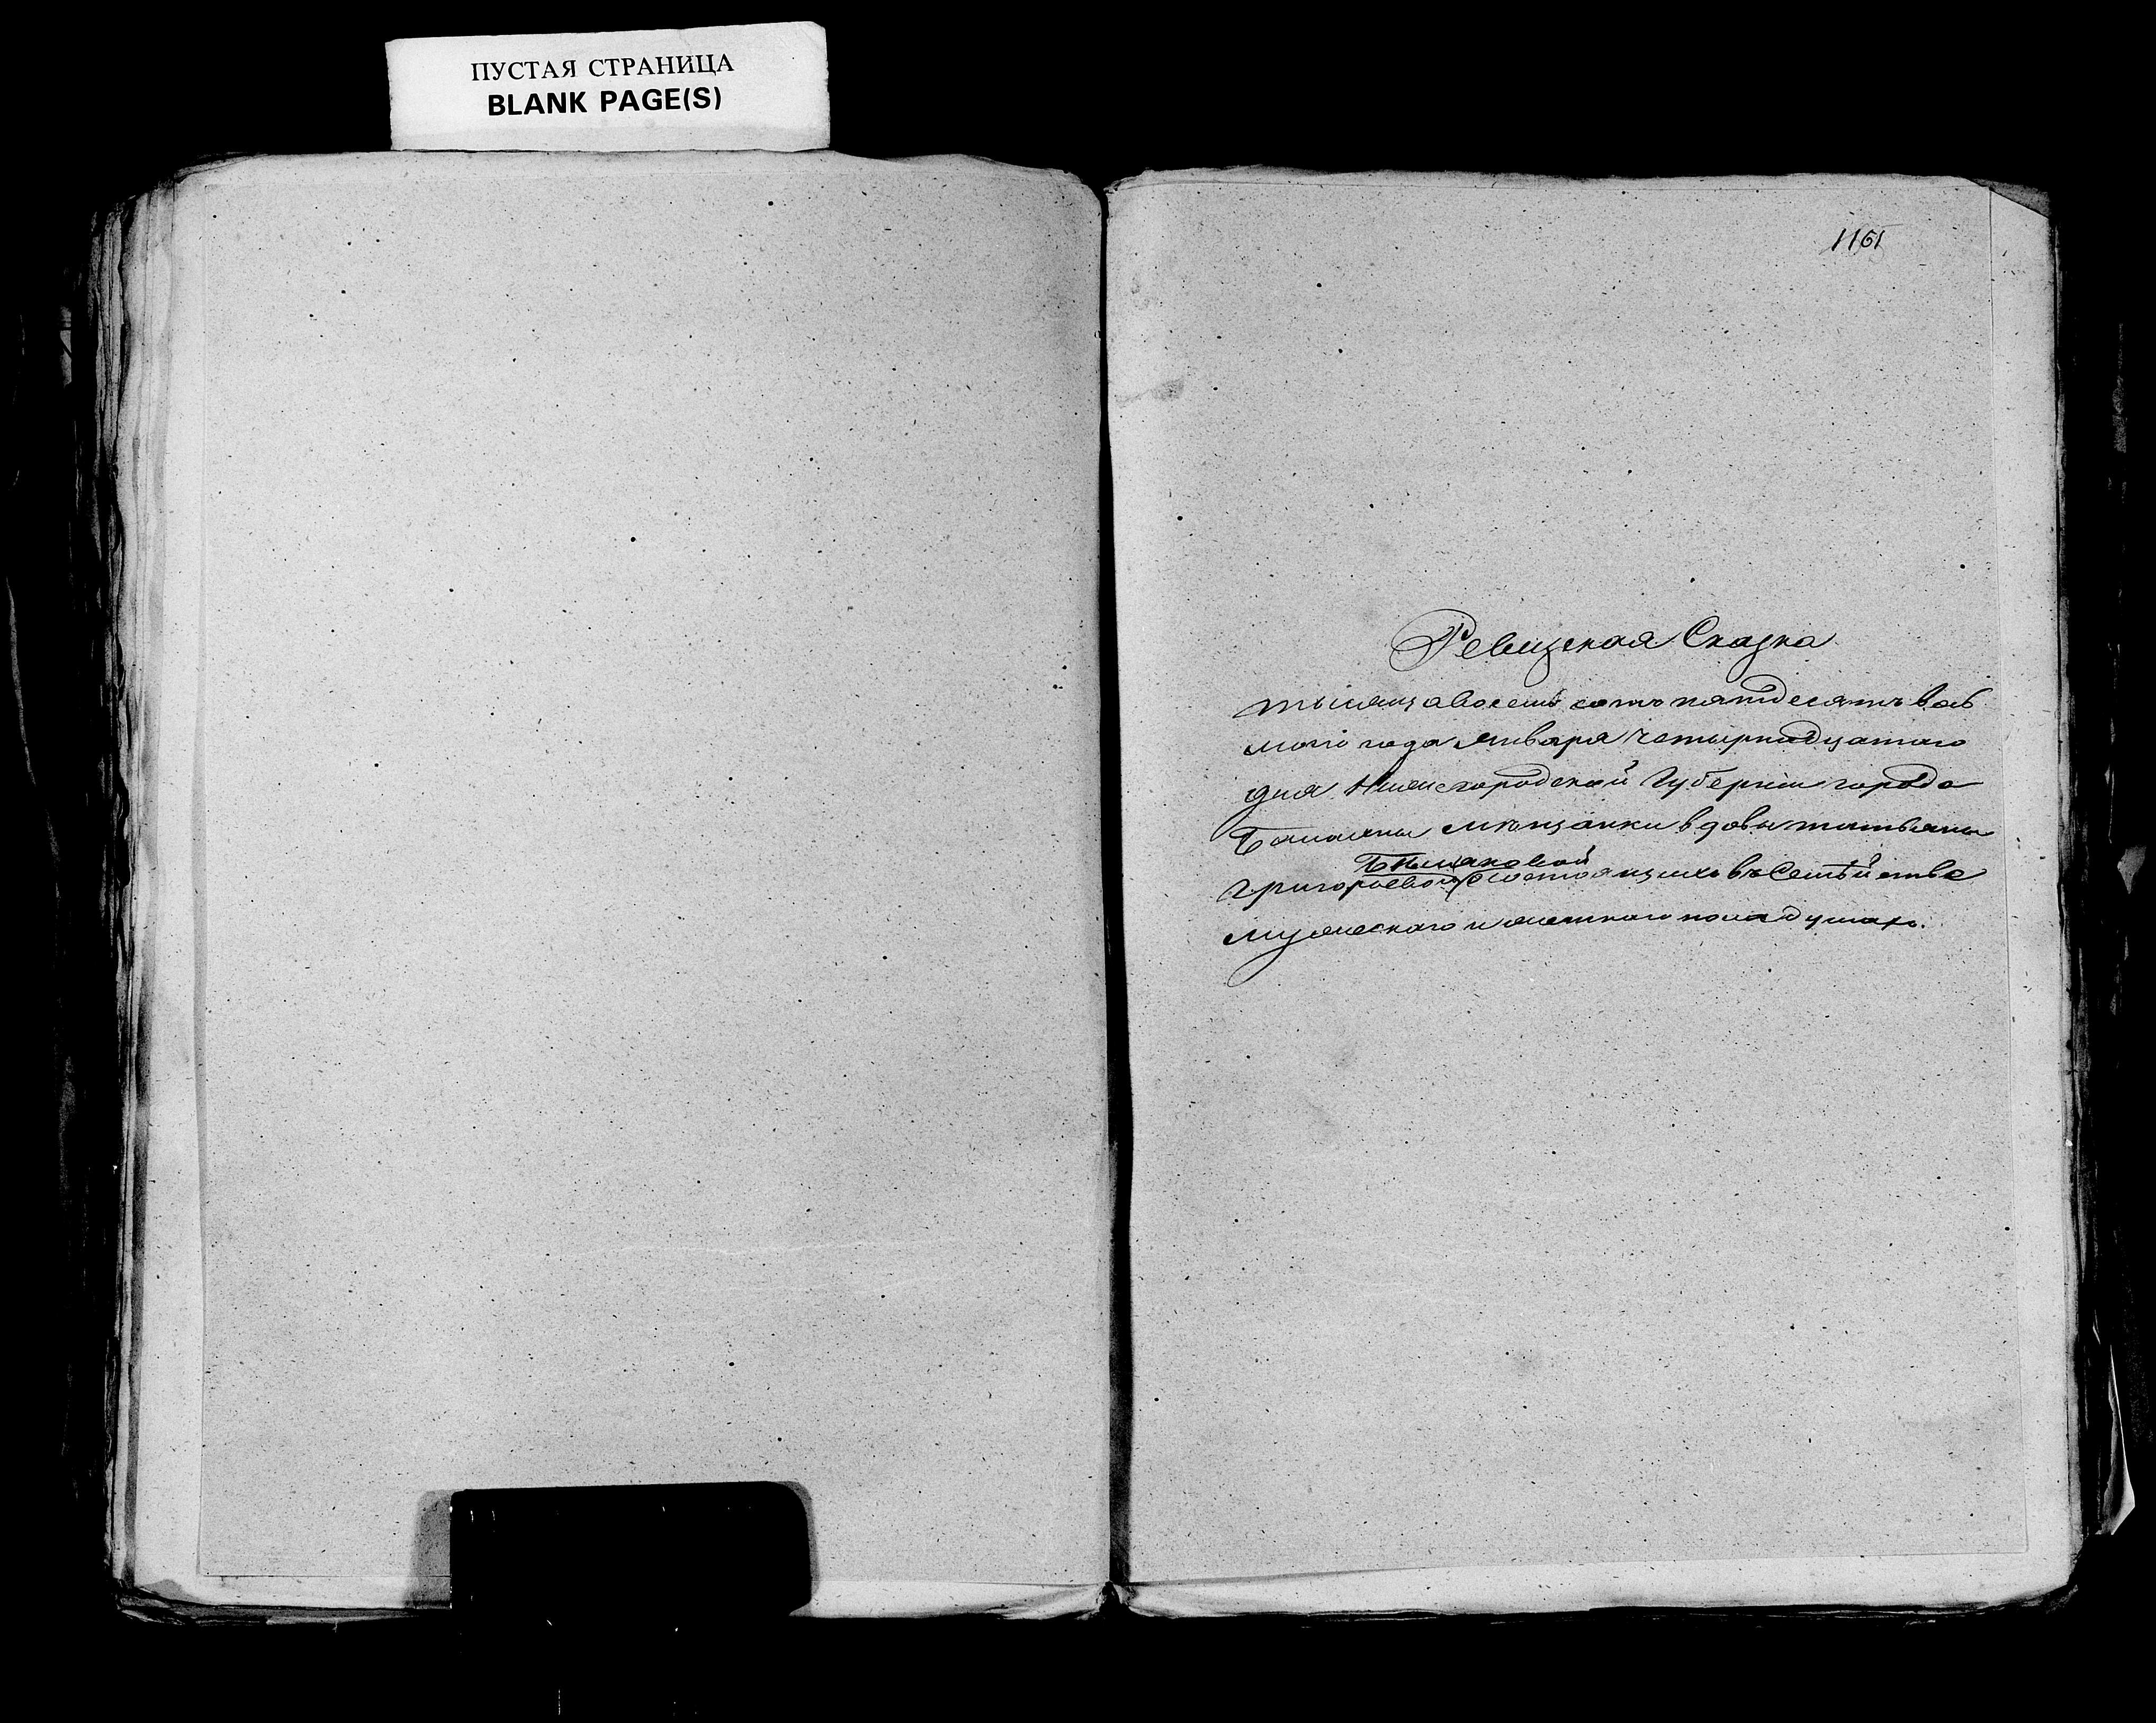 ПУСТАЯ СТРАНИЦА
BLANK PAGE(S)
1161
Ревизская Сказка
тысяща восемь сотъ пятдесятъ вось
мого года Января четырнадцатаго
дня Нижегородской Губерніи города
Балахны мѣщанки вдовы татьяны
Григорьевой состоящихъ въ Семѣйстве
мужескаго и женскаго пола душахъ.